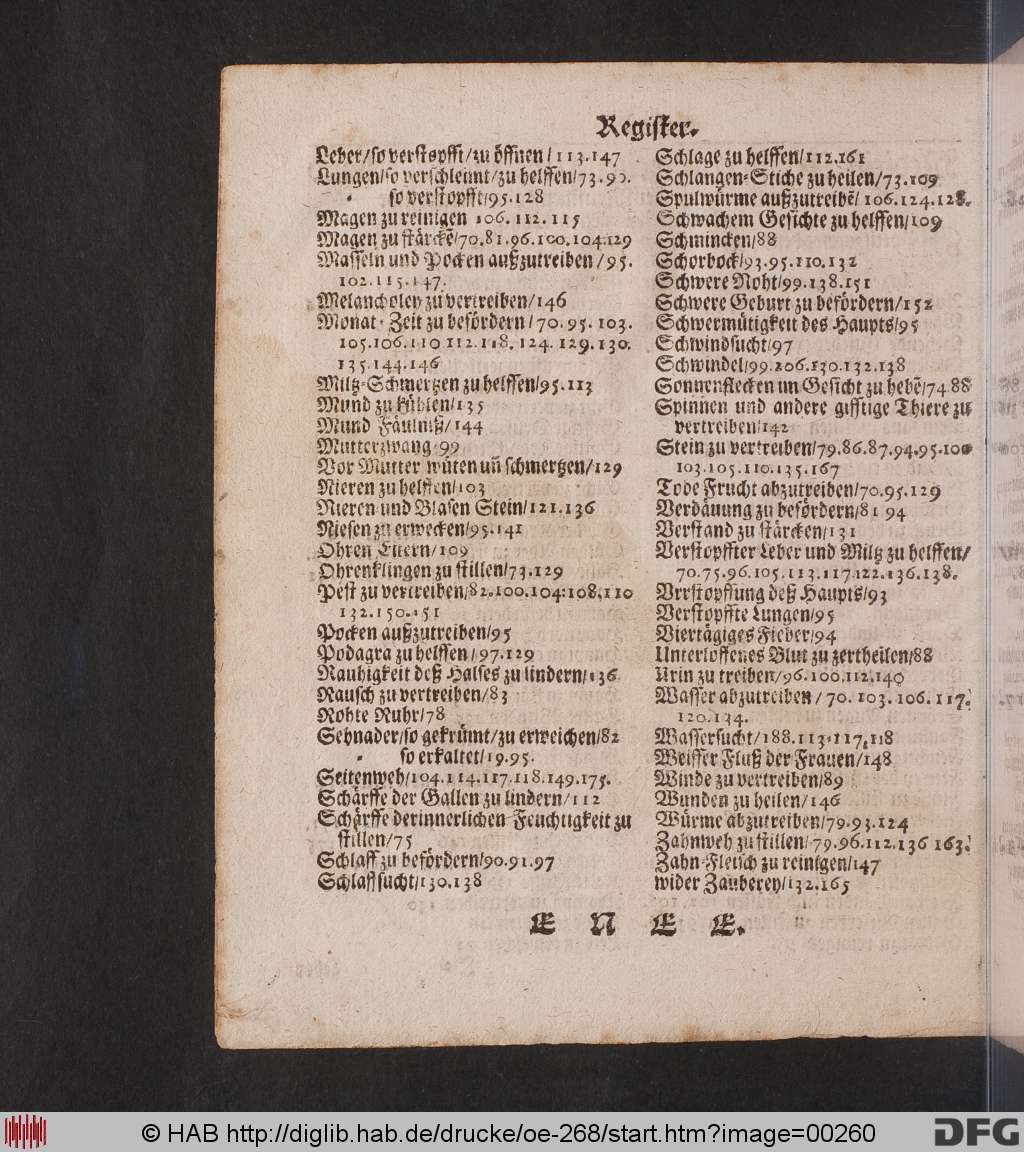 Register.
Leber/so verstopfft/zu öffnen/113.147
Lungen/so verschleimt/zu helffen/73.90.
so verstopfft/95.128
Magen zu reinigen 106.112.115
Magen zu stärckẽ/70.81.96.100.104.129
Masseln und Pocken außzutreiben/95.
102.115.147.
Melancholey zu vertreiben/146
Monat-Zeit zu befördern/70.95.103.
105.106.110.112.118.124.129.130.
135.144.146
Miltz-Schmertzen zu helffen/95.113
Mund zu kühlen/135
Mund Fäulniß/144
Mutterzwang.99
Vor Mutter wüten uñ schmertzen/129
Nieren zu helffen/103
Nieren und Blasen Stein/121.136
Niesen zu erwecken/95.141
Ohren Eitern/109
Ohrenklingen zu stillen/73.129
Pest zu vertreiben/82.100.104.108.110
132.150.151
Pocken außzutreiben/95
Podagra zu helffen/97.129
Rauhigkeit deß Halses zu lindern/136
Rausch zu vertreiben/83
Rohte Ruhr/78
Sehnader/so gekrümt/zu erweichen/82
so erkaltet/19.95.
Seitenweh/104.114.117.118.149.175.
Schärffe der Gallen zu lindern/112
Schärffe derinnerlichen Feuchtigkeit zu
stillen/75
Schlaff zu befördern/90.91.97
Schlaffsucht/130.138
Schlage zu helffen/112.161
Schlangen-Stiche zu heilen/73.109
Spulwürme außzutreibẽ/106.124.128.
Schwachem Gesichte zu helffen/109
Schmincken/88
Schorbock/93.95.110.132
Schwere Noht/99.138.151
Schwere Geburt zu befördern/152
Schwermütigkeit des Haupts/95
Schwindsucht/97
Schwindel/99.206.130.132.138
Sonnenflecken im Gesicht zu hebẽ/74.88
Spinnen und andere gifftige Thiere zu
vertreiben/142
Stein zu vertreiben/79.86.87.94.95.100
103.105.110.135.167
Tode Frucht abzutreiben/70.95.129
Verdäuung zu befördern/81 94
Verstand zu stärcken/131
Verstopffter Leber und Miltz zu helffen/
70.75.96.105.113.117.122.136.138.
Vrrstopffung deß Haupts/93
Verstopffte Lungen/95
Viertägiges Fieber/94
Unterloffenes Blut zu zertheilen/88
Urin zu treiben/96.100.112.140
Wasser abzutreiben/70.103.106.117.
120.134.
Wassersucht/188.113.117.118
Weisser Fluß der Frauen/148
Winde zu vertreiben/89
Wunden zu heilen/146
Würme abzutreiben/79.93.124
Zahnweh zu stillen/79.96.112.136 163.
Zahn-Fleisch zu reinigen/147
wider Zauberey/132.165
E N D E.
© HAB http://diglib.hab.de/drucke/oe-268/start.htm?image=00260
DFG